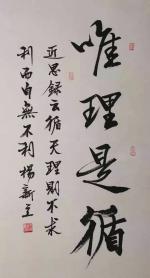 唯理是循
近思録云循天理則不求
利而自無不利楊新立